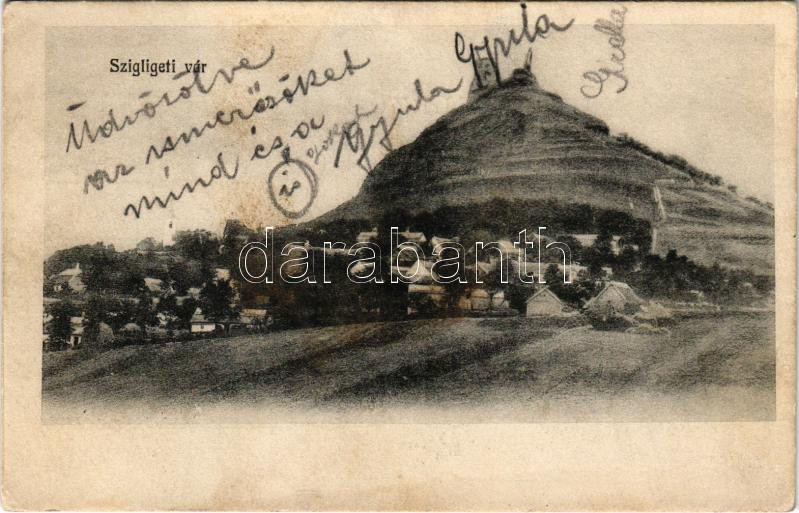 Szigligeti vár
Üdvözölve
az ismerősöket
mind és a
is
Gyula Gyula
darabanth